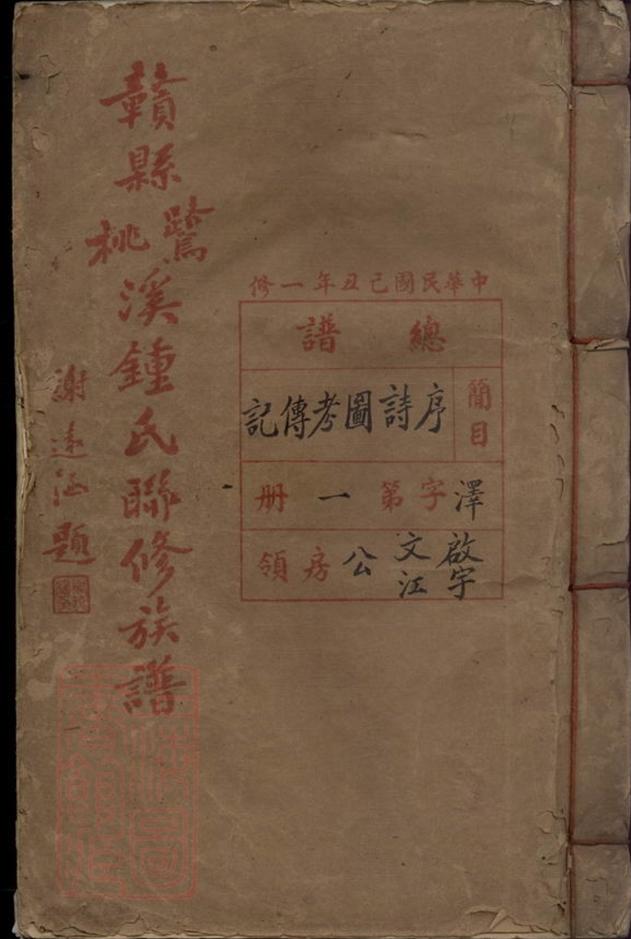 中華民國己丑年一修
總譜
簡目
序詩圖考傳記
澤字第一册
啟宇
文江
公房領
贛縣鷺桃溪鍾氏聯修族譜
謝遠涵題